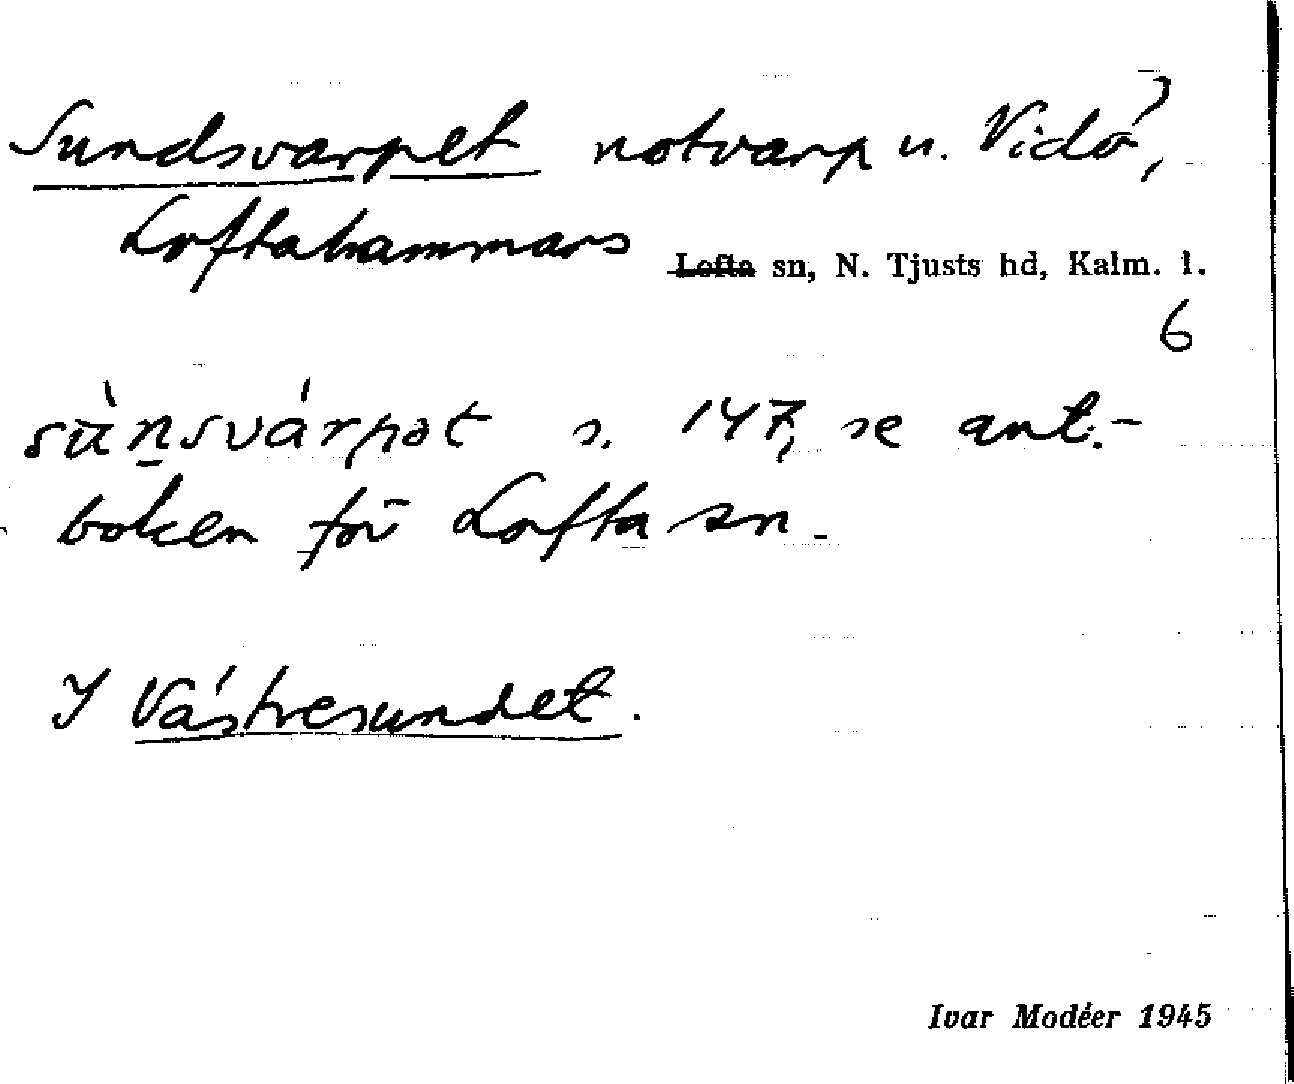 Sundsvarpet notvarp u. Vidö,
Loftahammars Lofta sn, N. Tjusts hd, Kalm. l.
6
sùn̠svárpət s. 147, se ant.-
boken för Lofta sn.
I Västresundet.
Ivar Modéer 1945